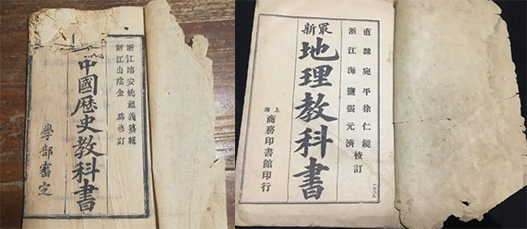 浙江瑞安姚祖義纂輯
浙江山陰金為修訂
中國歷史教科書
學部審定
直隸宛平徐仁鏡
浙江海鹽張元濟校訂
最新
地理教科書
上海
商務印書館印行